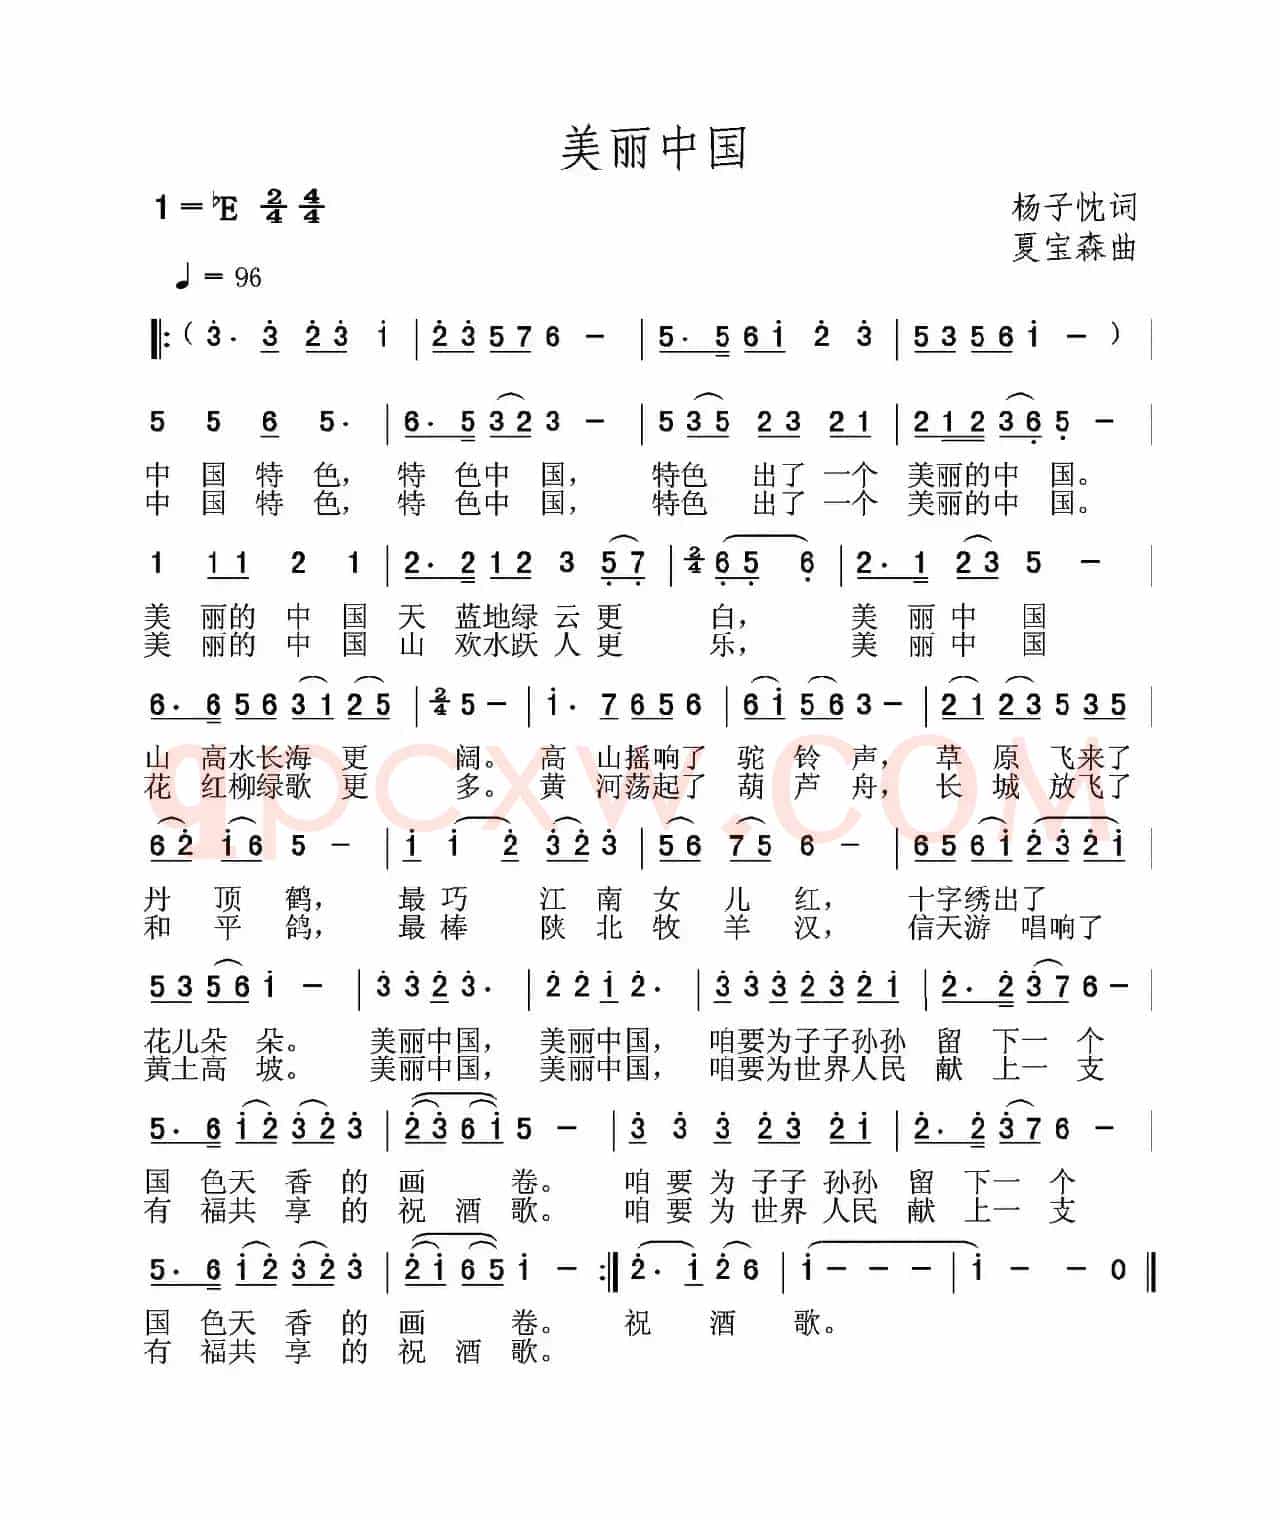 美丽中国
1=♭E 2/4 4/4
杨子忱词
夏宝森曲
♩= 96
‖:( 3̇. 3̇ 2̇3̇ 1̇ | 2̇3̇ 57 6 - | 5. 5 61̇ 2̇ 3̇ | 53 56 1̇ - ) |
5 5 6 5. | 6. 5 32 3 - | 5 35 23 21 | 212 36̣ 5̣ - |
中 国 特 色, 特 色中 国, 特色 出了 一个 美丽的中 国。
中 国 特 色, 特 色中 国, 特色 出了 一个 美丽的中 国。
1 11 2 1 | 2. 2 12 3 5̣7̣ | 2/4 6̣5̣ 6̣ | 2. 1 23 5 - |
美 丽的 中 国 天 蓝地绿 云 更 白, 美 丽 中 国
美 丽的 中 国 山 欢水跃 人 更 乐, 美 丽 中 国
6. 6 56 31 25 | 2/4 5 - | 1̇. 7 65 6 | 61̇ 56 3 - | 21 23 5 35 |
山 高水长海 更 阔。 高 山摇响了 驼 铃 声, 草 原 飞来了
花 红柳绿歌 更 多。 黄 河荡起了 葫 芦 舟, 长 城 放飞了
62̇ 1̇6 5 - | 1̇ 1̇ 2̇ 3̇2̇ 3̇ | 56 75 6 - | 65 61̇ 2̇3̇ 2̇1̇ |
丹 顶 鹤, 最 巧 江 南 女 儿 红, 十字绣出了
和 平 鸽, 最 棒 陕 北 牧 羊 汉, 信天游 唱响了
53 56 1̇ - | 3̇ 3̇ 2̇ 3̇. | 2̇ 2̇ 1̇ 2̇. | 3̇3̇ 3̇2̇ 3̇2̇ 1̇ | 2̇. 2̇ 3̇7 6 - |
花儿朵 朵。 美丽中国, 美丽中国, 咱要为子子孙孙 留 下一 个
黄土高 坡。 美丽中国, 美丽中国, 咱要为世界人民 献 上一 支
5. 6 1̇2̇ 3̇2̇ 3̇ | 2̇3̇ 61̇ 5 - | 3̇ 3̇ 3̇ 2̇3̇ 2̇1̇ | 2̇. 2̇ 3̇7 6 - |
国 色天 香 的 画 卷。 咱 要 为 子子 孙孙 留 下一 个
有 福共 享 的 祝 酒 歌。 咱 要 为 世界 人民 献 上一 支
5. 6 1̇2̇ 3̇2̇ 3̇ | 2̇1̇ 65 1̇ - :‖ 2̇. 1̇ 2̇6 | 1̇ - - - | 1̇ - - 0 ‖
国 色天 香 的 画 卷。 祝 酒 歌。
有 福共 享 的 祝 酒 歌。
qpcxw.COM